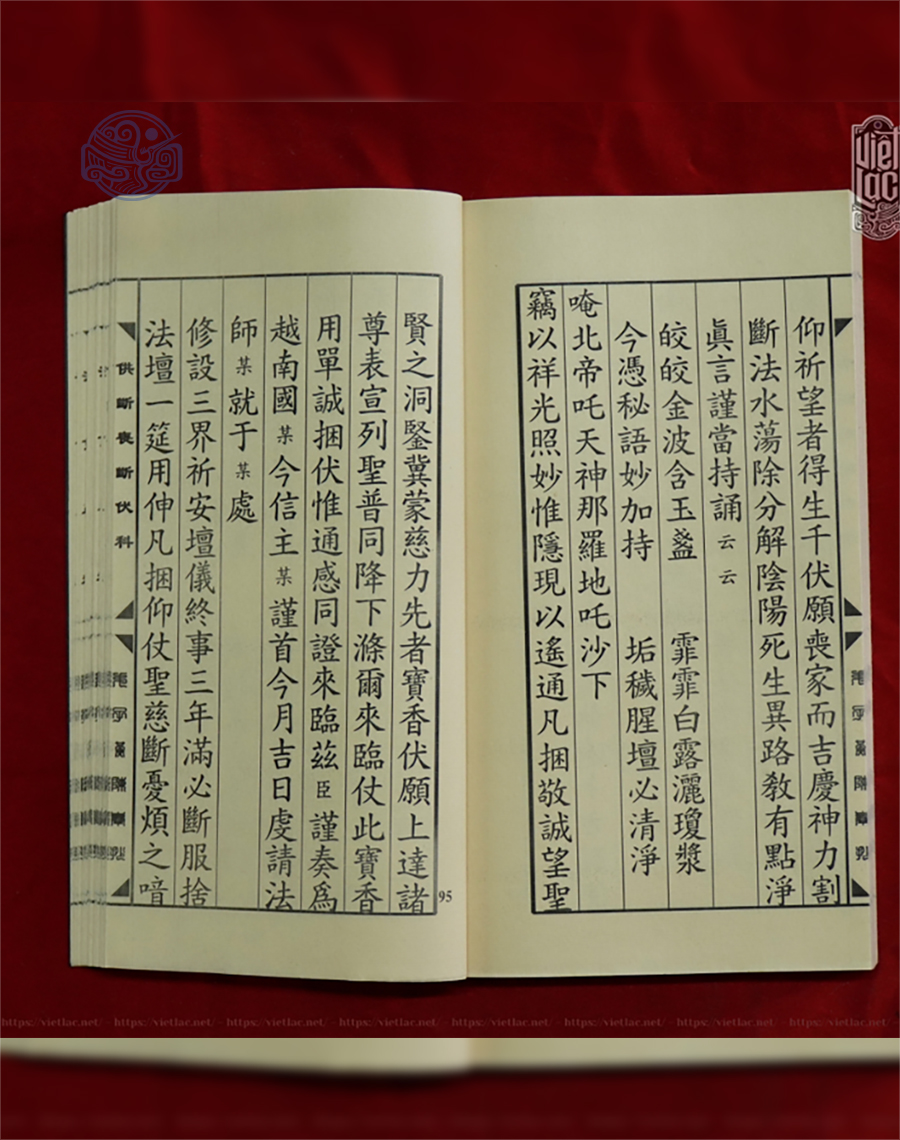 仰祈望者得生千伏願喪家而吉慶神力割
斷法水蕩除分解陰陽死生異路敎有點淨
眞言謹當持誦云云
皎皎金波含玉盞 霏霏白露灑瓊漿
今憑秘語妙加持 垢穢腥壇必清淨
唵北帝吒天神那羅地吒沙下
竊以祥光照妙惟隱現以遙通凡捆敬誠望聖
賢之洞鋻冀蒙慈力先者寶香伏願上達諸
尊表宣列聖普同降下滌爾來臨仗此寶香
用單誠捆伏惟通感同證來臨茲臣謹奏爲
越南國某今信主某謹首今月吉日虔請法
師某就于某處
修設三界祈安壇儀終事三年滿必斷服捨
法壇一筵用伸凡捆仰仗聖慈斷憂煩之喑
供斷喪斷伏科
95
Việt Lạc
https://vietlac.net/ - https://vietlac.net/ - https://vietlac.net/ - https://vietlac.net/ - https://vietlac.net/ - https://vietlac.net/ - https://vietlac.net/ - https://vietlac.net/